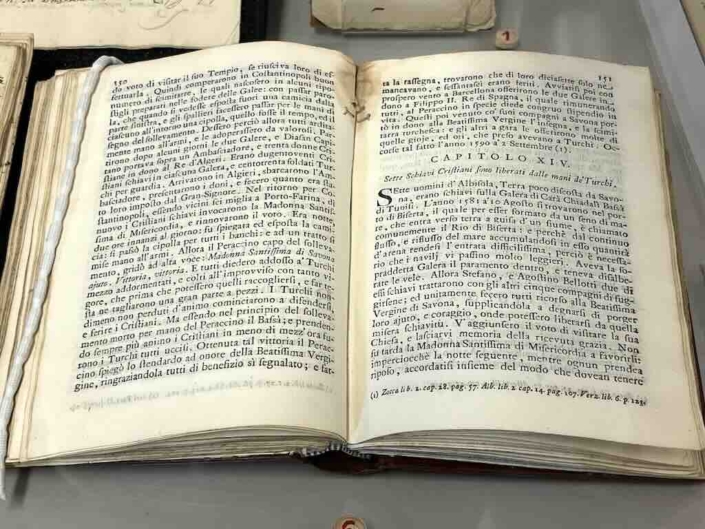 150
do voto di visitar il suo Tempio, se riusciva loro di ef-
fettuarla. Quindi comperarono in Costantinopoli buon
numero di scimitarre, le quali nascosero in alcuni ripo-
stigli preparati nelle fodere delle Galee: con passar paro-
la, che quando si vedesse esposta fuori una camicia dalla
parte sinistra, e gli spallieri facessero passar per le mani di
ciascuno all'intorno una cipolla, quello fosse il tempo, ed il
segno del sollevamento. Dessero perciò allora tutti ardita-
mente mano all'armi, e le adoperassero da valorosi. Par-
tirono dopo alcuni giorni le due Galere, e Diafan Capi-
tano portava sopra un Ambasciadore, e trenta donne Cri-
stiane in dono al Re d'Algeri. Erano dugenoventi Cri-
stiani schiavi in ciascuna Galera, e centotrenta soldati Tur-
chi per guardia. Arrivarono in Algieri, sbarcarono l'Am-
basciadore, presentarono i doni, e fecero quanto era sta-
to loro imposto dal Gran-Signore. Nel ritorno per Co-
stantinopoli, essendo vicini sei miglia a Porto-Farina, di
nuovo i Cristiani schiavi invocarono la Madonna Santis-
sima di Misericordia, e rinnovarono il voto. Era notte,
due ore innanzi al giorno: fu spiegata ed esposta la cami-
cia: si passò la cipolla per tutti i banchi: e ad un tratto si
mise mano all'armi. Allora il Peraccino capo del solleva-
mento, gridò ad alta voce: Madonna Santissima di Savona
ajuto. Vittoria, vittoria. E tutti diedero addosso a' Turchi
mezzo addormentati, e colti all'improvviso con tanto vi-
gore, che prima che potessero quelli raccoglierli, e far te-
sta ne tagliarono una gran parte a pezzi. I Turchi non-
dimeno non perduti d'animo cominciarono a difendersi,
e ferire i Cristiani. Ma essendo nel principio del solleva-
mento morto per mano del Peraccino il Bassà; e prenden-
do sempre più animo i Cristiani in meno di mezz'ora fu-
rono i Turchi tutti uccisi. Ottenuta tal vittoria il Perac-
cino spiegò lo stendardo ad onore della Beatissima Vergi-
gine, ringraziandola tutti di benefizio sì segnalato; e fat-
151
ta la rassegna, trovarono che di loro diciasette soli ne
mancavano, e sessantasei erano feriti. Avviatisi poi con
prospero vento a Barcellona offerirono le due Galere in
dono a Filippo II. Re di Spagna, il quale rimunerando
tutti, al Peraccino in specie diede congruo stipendio in
vita. Quelli poi venuto co' suoi compagni a Savona por-
tò in dono alla Beatissima Vergine l'insegna, e la scimi-
tarra turchesca: e gli altri a gara le offerirono molte di
quelle gioje, ed ori, che preso avevano a Turchi. Oc-
corse tal fatto l'anno 1590 a 2 Settembre (1).
CAPITOLO XIV.
Sette Schiavi Cristiani sono liberati dalle mani de' Turchi.
SEtte uomini d'Albisola, Terra poco discosta da Savo-
na, erano schiavi sulla Galera di Carà Chiadalì Bassà
di Tunisi. L'anno 1581 a 10 Agosto si trovarono nel por-
to di Biserta, il quale per esser formato da un seno di ma-
re, che entra verso terra a guisa d'un fiume, è chiamato
comunemente il Rio di Biserta: e perchè dal continuo
flusso, e riflusso del mare accumulandosi in esso quantità
d'arena rendesi l'entrata difficilissima, perciò è necessa-
rio che i navilj vi passino molto leggieri. Aveva la so-
praddetta Galera il paramento dentro, e teneva disalbe-
rate le vele. Allora Stefano, e Agostino Bellotti due di
essi schiavi trattarono con gli altri cinque compagni di fug-
girsene; ed unitamente fecero tutti ricorso alla Beatissima
Vergine di Savona, supplicandola a degnarsi di porger
loro ajuto, e coraggio, onde potessero liberarsi da quella
misera schiavitù. V'aggiunsero il voto di visitare la sua
Chiesa, e lasciarvi memoria della ricevuta grazia. Non
fu tarda la Madonna Santissima di Misericordia a favorirli:
imperciocchè la notte seguente, mentre ognun prendea
riposo, accordatisi insieme del modo che dovean tenere
(1) Zocca lib. 2. cap. 28. pag. 57. Alb. lib. 2. cap. 14. pag. 167. Verz. lib. 6. p. 123.
1
6